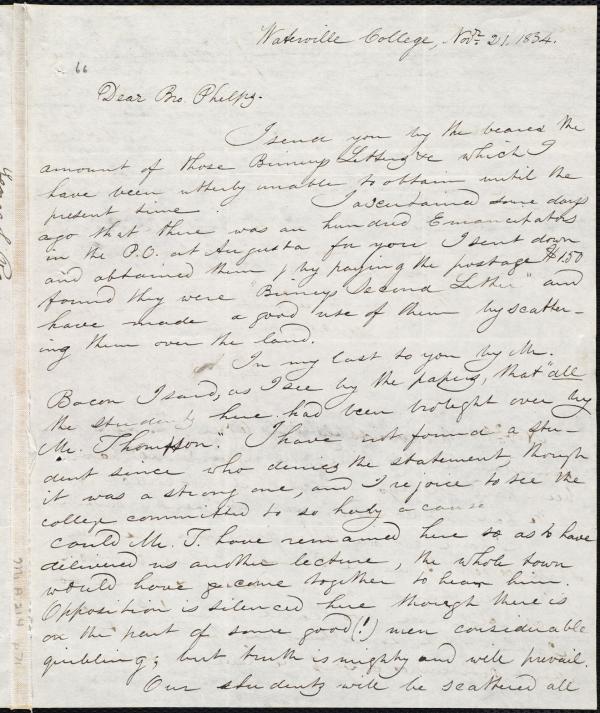 Waterville College, Novr. 21, 1834.
66
Dear Bro. Phelps.
I send you by the bearer the
amount of those Birneys Letters &c which I
have been utterly unable to obtain until the
present time. I ascertained some days
ago that there was an hundred Emancipators
in the P.O. at Augusta for you I sent down
and obtained them by paying the postage $1.50
found they were "Birneys Second Letter" and
have made a good use of them by scatter-
ing them over the land.
In my last to you by Mr.
Bacon I said, as I see by the papers, that "all
the students here had been brought over by
Mr. Thompson". I have not found a stu-
dent since who denies the statement, though
it was a strong one, and I rejoice to see the
college committed to so holy a cause
could Mr. T. have remained here so as to have
delivered us another lecture, the whole town
would have come together to hear him.
Opposition is silenced here though there is
on the part of some good (!) men considerable
quibbling; but truth is mighty and will prevail.
Our students will be scattered all